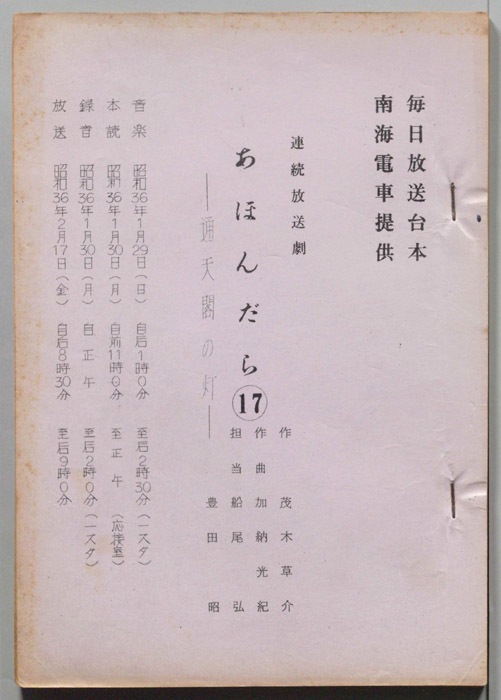 毎日放送台本
南海電車提供
連続放送劇
あほんだら⑰
―通天閣の灯―
作 茂木草介
作曲 加納光紀
担当 船尾弘
豊田昭
音楽 昭和36年1月29日(日) 自后1時0分 至后2時30分(一スタ)
本読 昭和36年1月30日(月) 自前11時0分 至正午(応接室)
録音 昭和36年1月30日(月) 自正午 至后2時0分(一スタ)
放送 昭和36年2月17日(金) 自后8時30分 至后9時0分